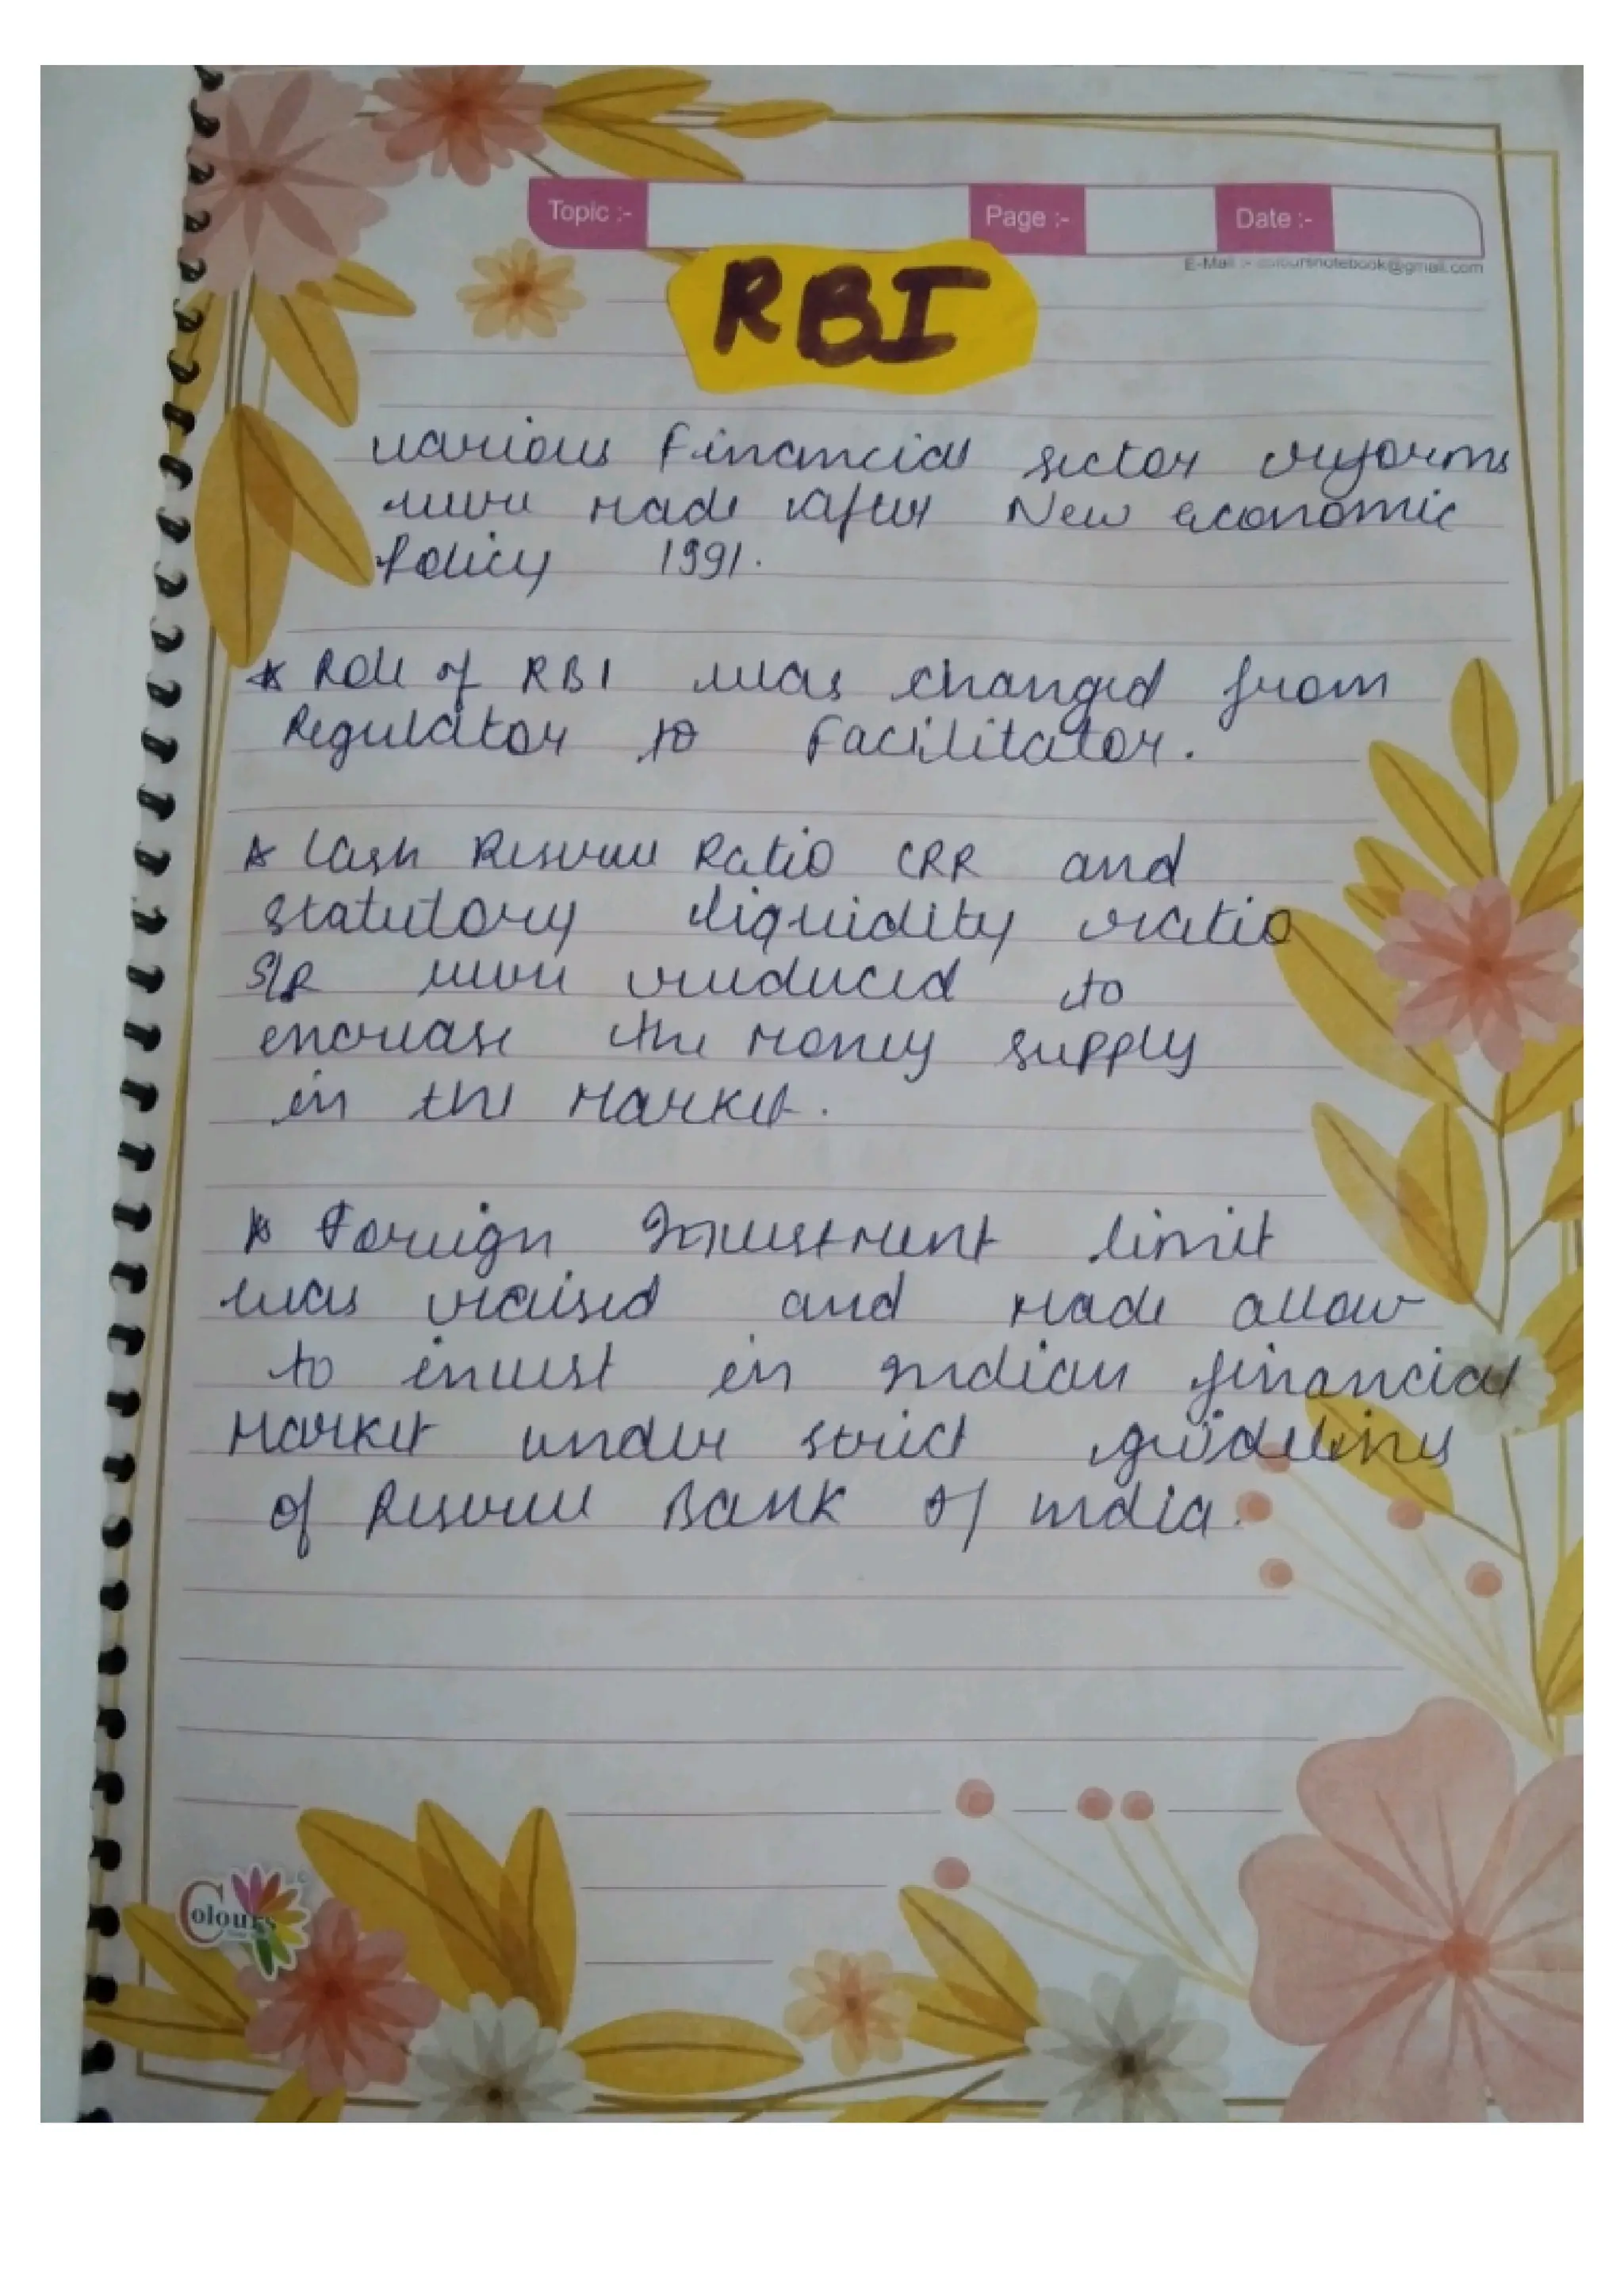 Topic :- Page :- Date :-
E-Mail :- coloursnotebook@gmail.com
RBI
various Financial sector reforms
were Made after New economic
Policy 1991.
* Role of RBI was changed from
Regulator to Facilitator.
* Cash Reserve Ratio CRR and
statutory liquidity ratio
SLR were reduced to
encrease the Money supply
in the Market.
* Foreign Investment limit
was raised and Made allow
to invest in Indian financial
Market under strict guidelines
of Reserve Bank of india.
Colours